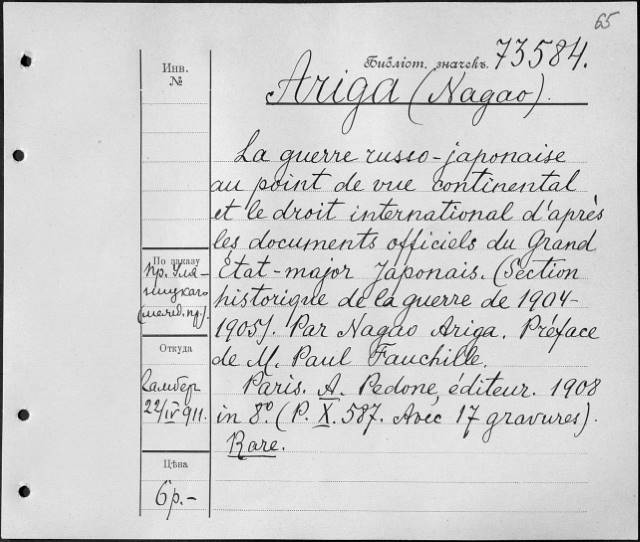 65
Библіот. значекъ. 73584.
Инв.
№
Ariga (Nagao).
La guerre russo-japonaise
au point de vue continental
et le droit international d'après
les documents officiels du Grand
État-major Japonais. (Section
historique de la guerre de 1904-
1905). Par Nagao Ariga. Préface
de M. Paul Fauchille.
Paris. A. Pedone, éditeur. 1908
in 8º. (P. X. 587. Avec 17 gravures).
Rare.
По заказу
пр. Уля-
ницкаго
(межд. пр.).
Откуда
Ламберъ
22/IV 911.
Цѣна
6 р.-